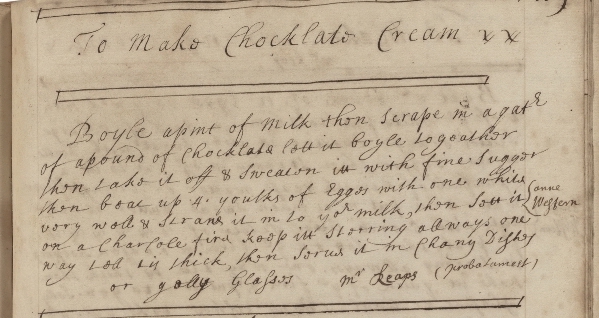 To Make Chocklate Cream xx
Boyle a pint of Milk then Scrape in a qatr
of a pound of Chocklate lett it boyle togeather
then take it off & Sweaten itt with fine Sugger
then beat up 4 youlks of Eggs with one white
very well & Strane it in to yor milk, then Sett it
anne
Western
on a Charcole fire keep itt Storring allways one
way tell tis thick, then Serve it in Chany Dishes
or gelly Glasses Mrs Heaps (probatumest)